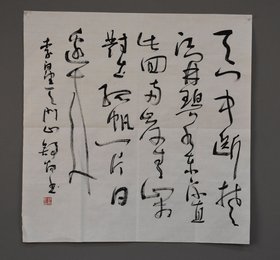 天门中断楚
江开碧水东流直
此回两岸青山相
對出孤帆一片日
邊来
李白望天门山 书